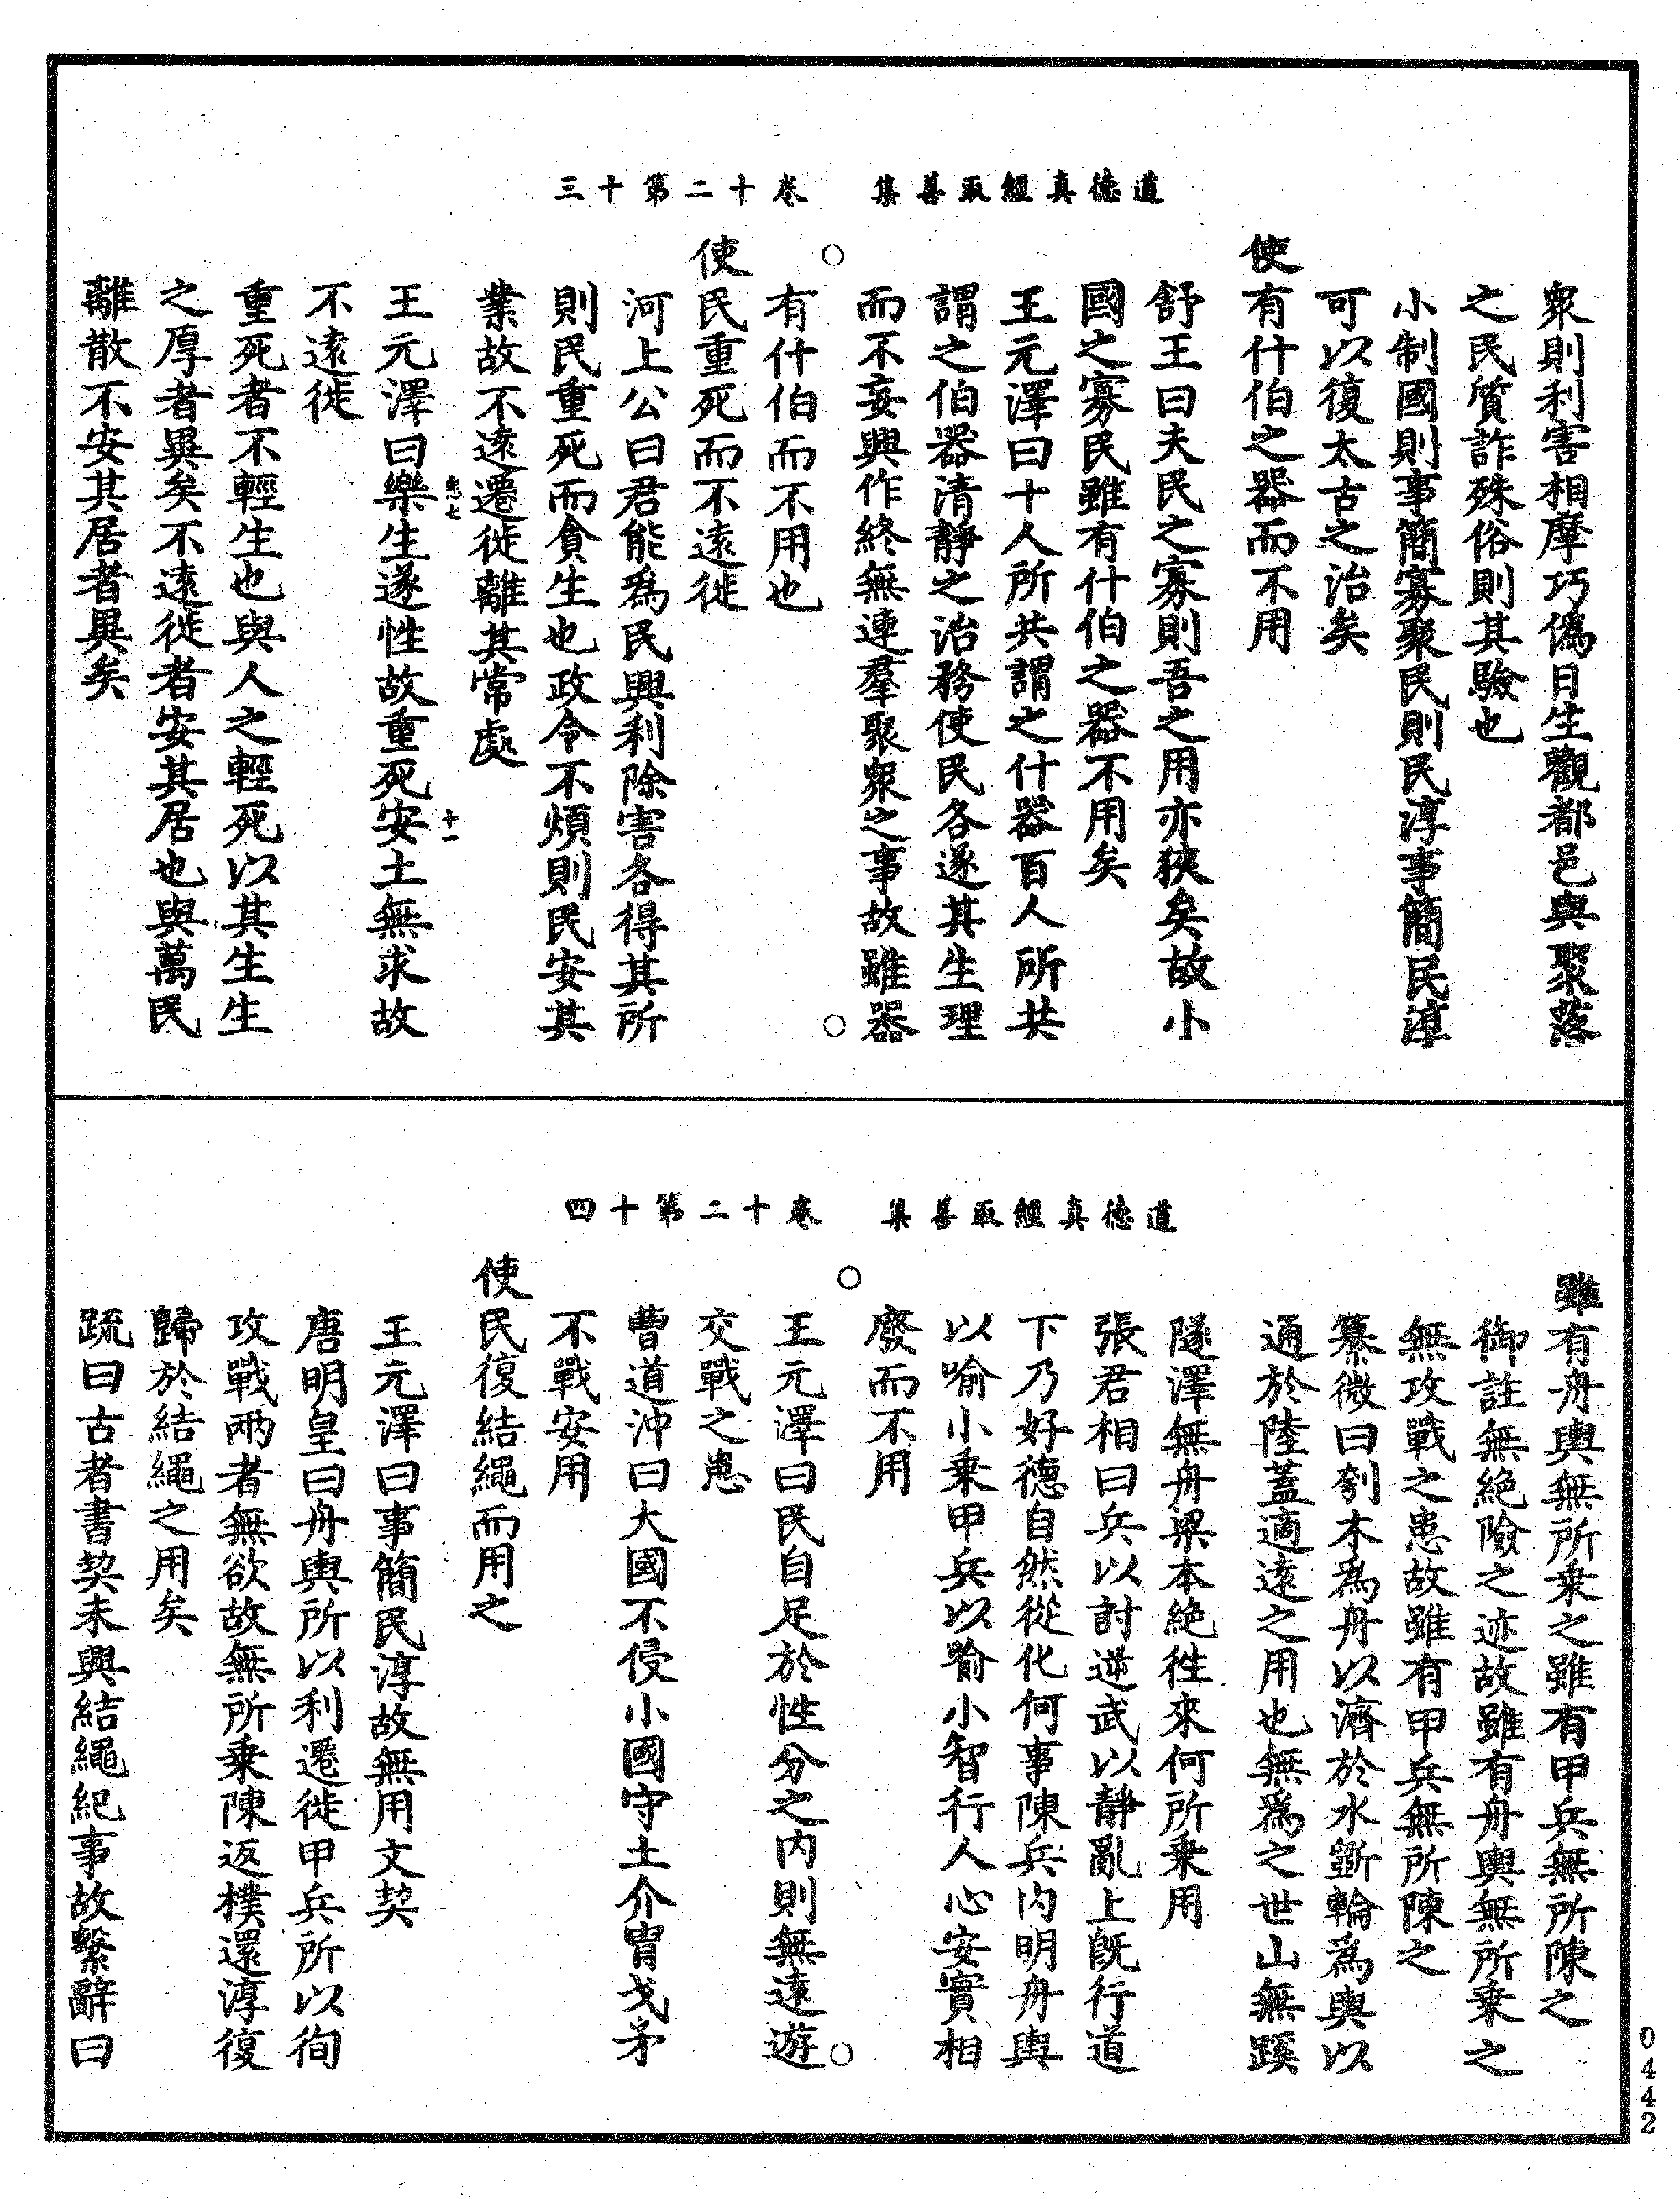 道德真經取善集　卷十二第十三
衆則利害相摩巧僞日生觀都邑與聚落
之民質詐殊俗則其驗也
小制國則事簡寡聚民則民淳事簡民淳
可以復太古之治矣
使有什伯之器而不用
舒王曰夫民之寡則吾之用亦狹矣故小
國之寡民雖有什伯之器不用矣
王元澤曰十人所共謂之什器百人所共
謂之伯器清靜之治務使民各遂其生理
而不妄興作終無連羣聚衆之事故雖器
有什伯而不用也
使民重死而不遠徙
河上公曰君能爲民興利除害各得其所
則民重死而貪生也政令不煩則民安其
業故不遠遷徙離其常處
七
十一
王元澤曰樂生遂性故重死安土無求故
不遠徙
重死者不輕生也與人之輕死以其生生
之厚者異矣不遠徙者安其居也與萬民
離散不安其居者異矣
道德真經取善集　卷十二第十四
雖有舟輿無所乘之雖有甲兵無所陳之
御註無絕險之迹故雖有舟輿無所乘之
無攻戰之患故雖有甲兵無所陳之
纂微曰刳木爲舟以濟於水斵輪爲輿以
通於陸蓋適遠之用也無爲之世山無蹊
隧澤無舟梁本絕往來何所乘用
張君相曰兵以討逆武以靜亂上旣行道
下乃好德自然從化何事陳兵内明舟輿
以喻小乘甲兵以喻小智行人心安實相
廢而不用
王元澤曰民自足於性分之内則無遠遊
交戰之患
曹道沖曰大國不侵小國守土介冑戈矛
不戰安用
使民復結繩而用之
王元澤曰事簡民淳故無用文契
唐明皇曰舟輿所以利遷徙甲兵所以徇
攻戰兩者無欲故無所乘陳返樸還淳復
歸於結繩之用矣
疏曰古者書契未興結繩紀事故繫辭曰
0442